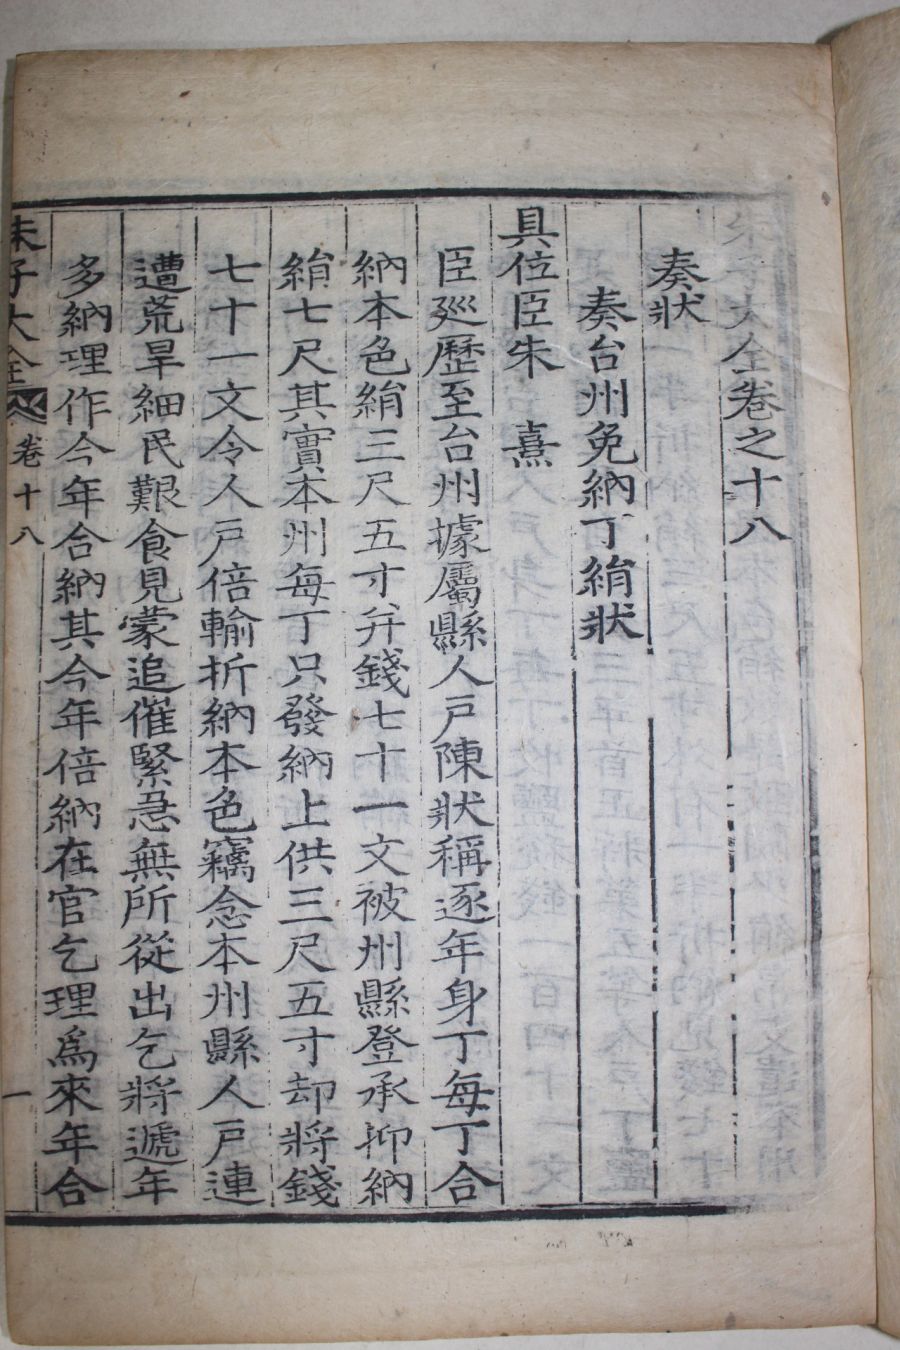 朱子大全卷之十八
奏狀
奏台州免納丁絹狀
具位臣朱 熹
臣廵歷至台州據屬縣人戶陳狀稱逐年身丁每丁合
納本色絹三尺五寸并錢七十一文被州縣登承抑納
絹七尺其實本州每丁只發納上供三尺五寸却將錢
七十一文令人戶倍輸折納本色竊念本州縣人戶連
遭荒旱細民艱食見蒙追催緊急無所從出乞將遞年
多納理作今年合納其今年倍納在官乞理爲來年合
朱子大全 卷十八 一